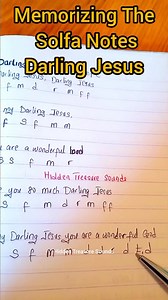 Memorizing The
Solfa Notes
Darling Jesus
Darling
Jesus, Darling Jesus
f m d r m f f
my Darling Jesus
S f m r
are a wonderful Lord
S S f m r
Hidden Treasure Sounds
you so much Darling Jesus
S f m d r m f f
my Darling Jesus, you are a wonderful God
S f m m d d t, d